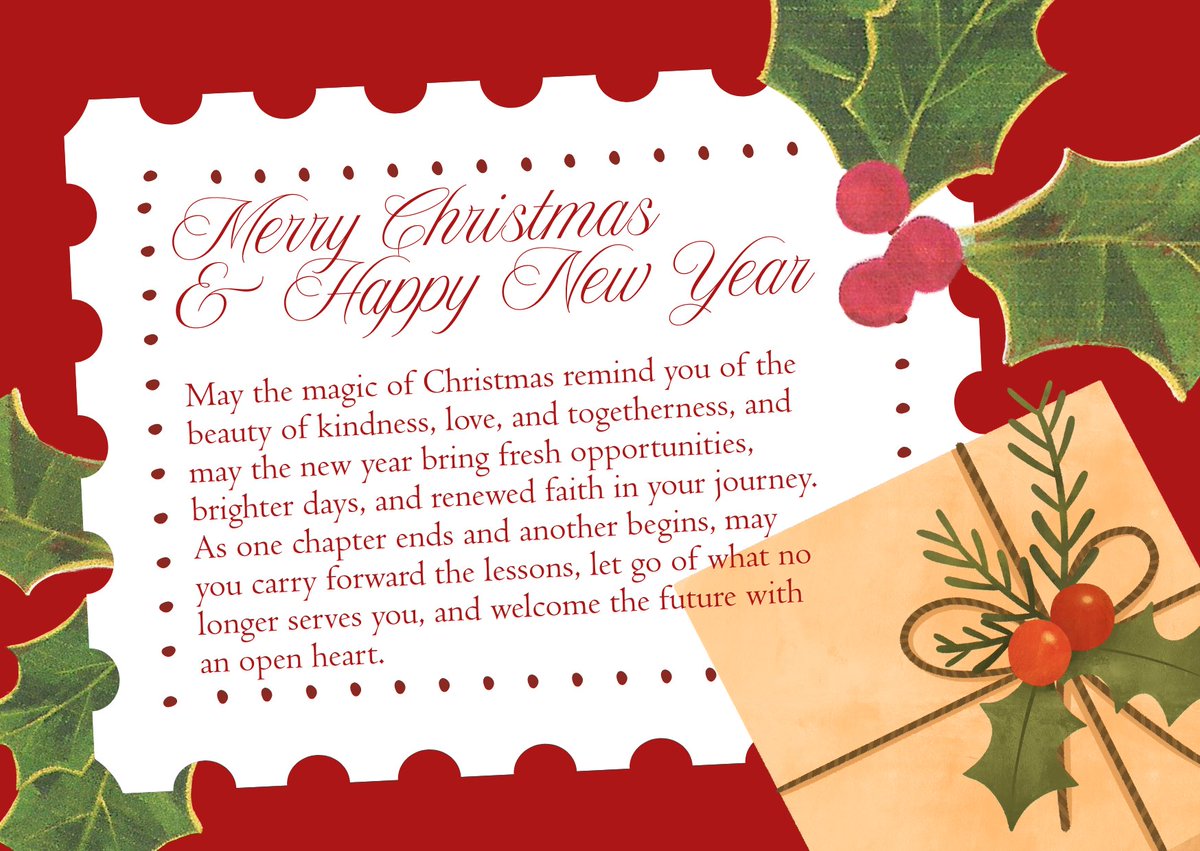 Merry Christmas
& Happy New Year
May the magic of Christmas remind you of the
beauty of kindness, love, and togetherness, and
may the new year bring fresh opportunities,
brighter days, and renewed faith in your journey.
As one chapter ends and another begins, may
you carry forward the lessons, let go of what no
longer serves you, and welcome the future with
an open heart.